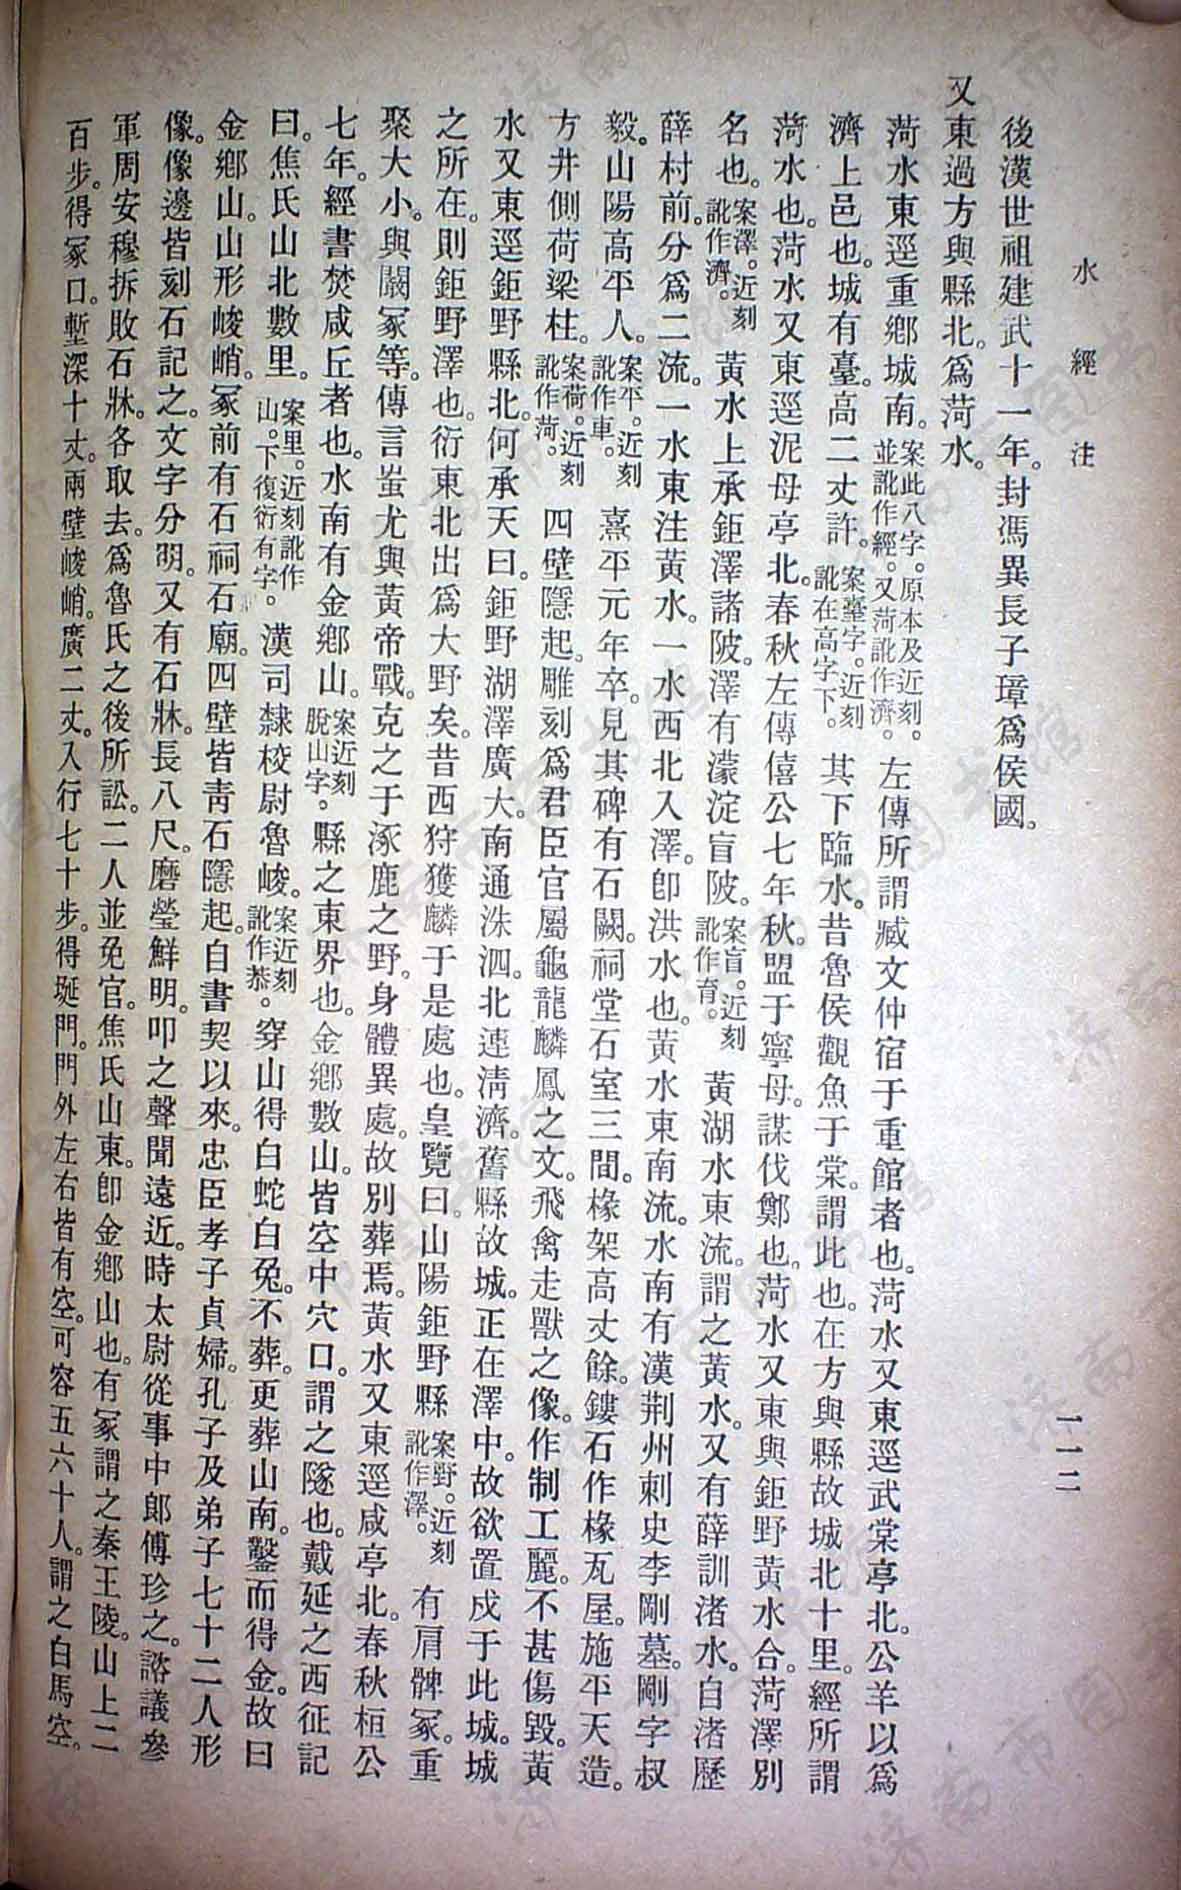 水經注
一一二
後漢世祖建武十一年。封馮異長子璋爲侯國。
又東過方與縣北。爲菏水。
菏水東逕重鄉城南。案此八字。原本及近刻。並訛作經。又菏訛作濟。左傳所謂臧文仲宿于重館者也。菏水又東逕武棠亭北。公羊以爲
濟上邑也。城有臺。高二丈許。案臺字。近刻訛在高字下。其下臨水。昔魯侯觀魚于棠。謂此也。在方與縣故城北十里。經所謂
菏水也。菏水又東逕泥母亭北。春秋左傳僖公七年秋。盟于寧母。謀伐鄭也。菏水又東與鉅野黃水合。菏澤別
名也。案澤。近刻訛作濟。黃水上承鉅澤諸陂。澤有濛淀盲陂。案盲。近刻訛作育。黃湖水東流。謂之黃水。又有薛訓渚水。自渚歷
薛村前。分爲二流。一水東注黃水。一水西北入澤。卽洪水也。黃水東南流。水南有漢荆州刺史李剛墓。剛字叔
毅。山陽高平人。案平。近刻訛作車。熹平元年卒。見其碑有石闕。祠堂石室三間。椽架高丈餘。鏤石作椽瓦屋。施平天造。
方井側荷梁柱。案荷。近刻訛作菏。四壁隱起。雕刻爲君臣官屬龜龍麟鳳之文。飛禽走獸之像。作制工麗。不甚傷毀。黃
水又東逕鉅野縣北。何承天曰。鉅野湖澤廣大。南通洙泗。北連淸濟。舊縣故城。正在澤中。故欲置戍于此城。城
之所在。則鉅野澤也。衍東北出爲大野矣。昔西狩獲麟于是處也。皇覽曰。山陽鉅野縣案野。近刻訛作澤。有肩髀冢。重
聚大小。與闞冢等。傳言蚩尤與黃帝戰。克之于涿鹿之野。身體異處。故別葬焉。黃水又東逕咸亭北。春秋桓公
七年。經書焚咸丘者也。水南有金鄉山。案近刻脫山字。縣之東界也。金鄉數山。皆空中穴口。謂之隧也。戴延之西征記
曰。焦氏山北數里。案里。近刻訛作山。下復衍有字。漢司隸校尉魯峻。案近刻訛作恭。穿山得白蛇白兔。不葬。更葬山南。鑿而得金。故曰
金鄉山。山形峻峭。冢前有石祠石廟。四壁皆靑石隱起。自書契以來。忠臣孝子貞婦。孔子及弟子七十二人形
像。像邊皆刻石記之。文字分明。又有石牀。長八尺。磨瑩鮮明。叩之聲聞遠近。時太尉從事中郎傅珍之。諮議參
軍周安穆拆敗石牀。各取去。爲魯氏之後所訟。二人並免官。焦氏山東。卽金鄉山也。有冢謂之秦王陵。山上二
百步。得冢口。塹深十丈。兩壁峻峭。廣二丈。入行七十步。得埏門。門外左右皆有空。可容五六十人。謂之白馬空。